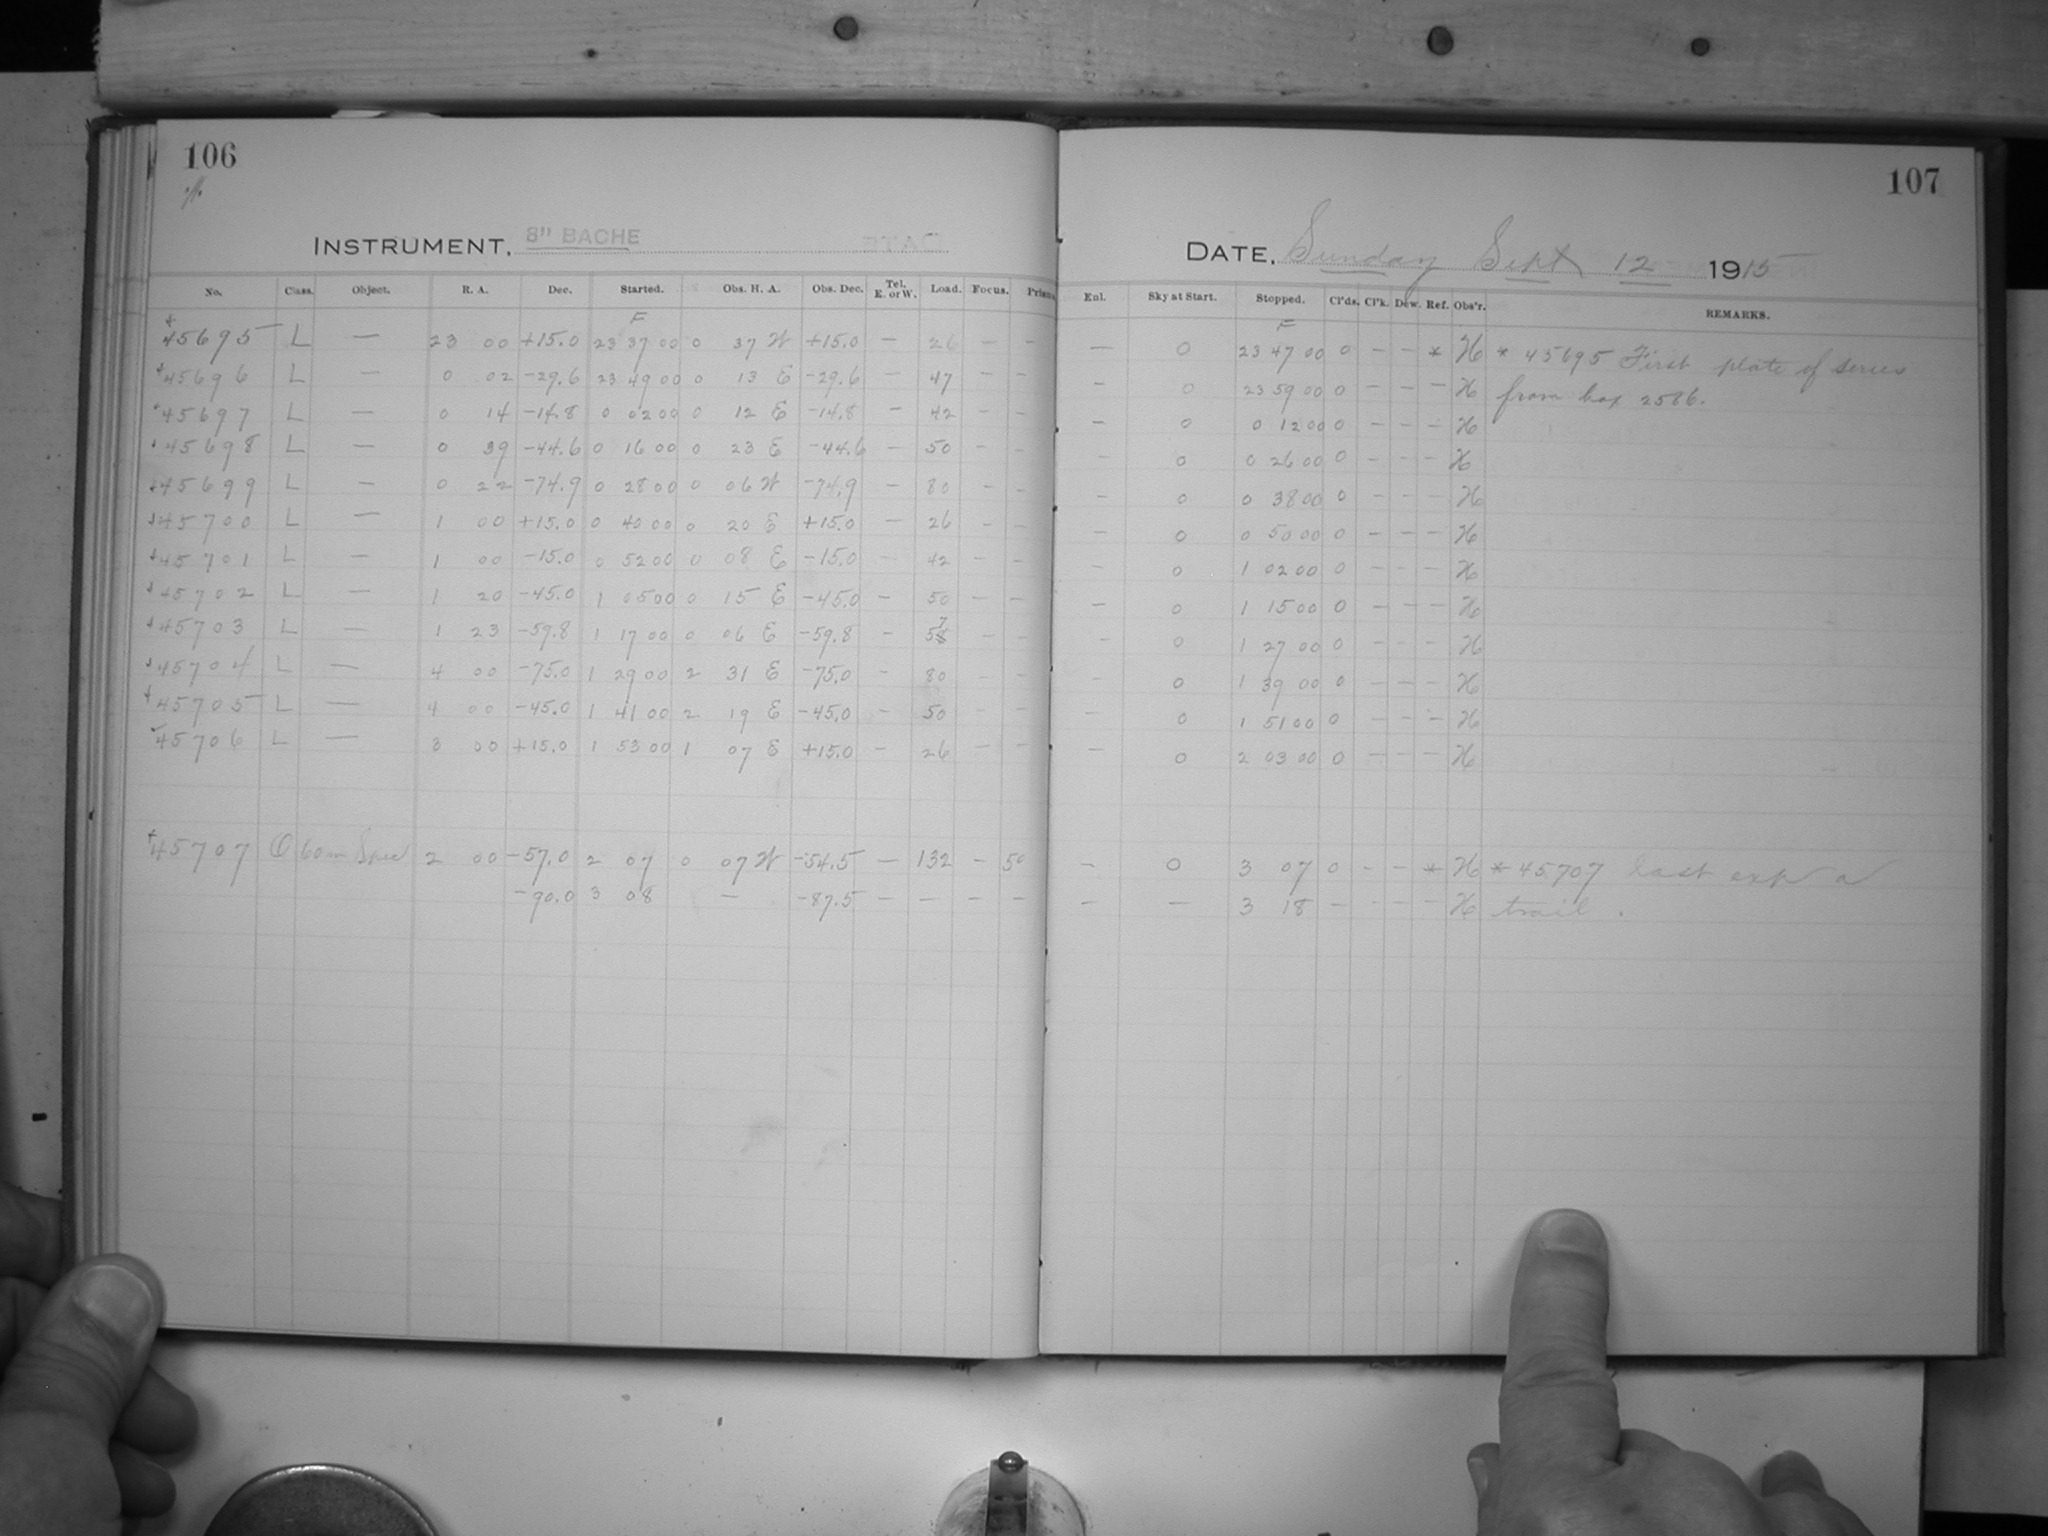 106
107
INSTRUMENT, 8" BACHE
DATE, Sunday Sept 12 1915
No. Class. Object. R. A. Dec. Started. Obs. H. A. Obs. Dec. Tel. E. or W. Load. Focus. Prism. Enl. Sky at Start. Stopped. Cl'ds. Cl'k. Dew. Ref. Obs'r. REMARKS.
F F
45695 L — 23 00 +15.0 23 37 00 0 37 W +15.0 — 26 — — — 0 23 47 00 0 — — * H * 45695 First plate of series
45696 L — 0 02 -29.6 23 49 00 0 13 E -29.6 — 47 — — — 0 23 59 00 0 — — — H from box 2586.
45697 L — 0 14 -14.8 0 02 00 0 12 E -14.8 — 42 — — — 0 0 12 00 0 — — — H
45698 L — 0 39 -44.6 0 16 00 0 23 E -44.6 — 50 — — — 0 0 26 00 0 — — — H
45699 L — 0 22 -74.9 0 28 00 0 06 W -74.9 — 80 — — — 0 0 38 00 0 — — — H
45700 L — 1 00 +15.0 0 40 00 0 20 E +15.0 — 26 — — — 0 0 50 00 0 — — — H
45701 L — 1 00 -15.0 0 52 00 0 08 E -15.0 — 42 — — — 0 1 02 00 0 — — — H
45702 L — 1 20 -45.0 1 05 00 0 15 E -45.0 — 50 — — — 0 1 15 00 0 — — — H
45703 L — 1 23 -59.8 1 17 00 0 06 E -59.8 — 57 — — — 0 1 27 00 0 — — — H
45704 L — 4 00 -75.0 1 29 00 2 31 E -75.0 — 80 — — — 0 1 39 00 0 — — — H
45705 L — 4 00 -45.0 1 41 00 2 19 E -45.0 — 50 — — — 0 1 51 00 0 — — — H
45706 L — 3 00 +15.0 1 53 00 1 07 E +15.0 — 26 — — — 0 2 03 00 0 — — — H
45707 O 60m Spec 2 00 -57.0 2 07 0 07 W -54.5 — 132 — 50 — 0 3 07 0 — — * H * 45707 Last exp a
-90.0 3 08 — -87.5 — — — — — — 3 18 — — — — H trail.